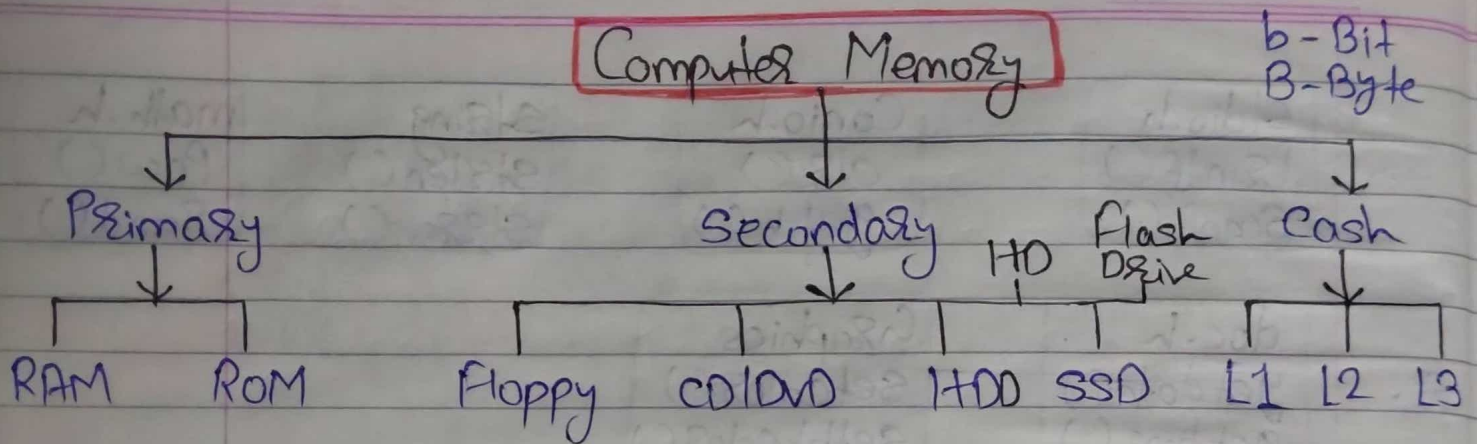 Computer Memory
b - Bit
B - Byte
Primary
Secondary
HD
Flash
Drive
Cash
RAM
ROM
Floppy
CD/DVD
HDD
SSD
L1
L2
L3